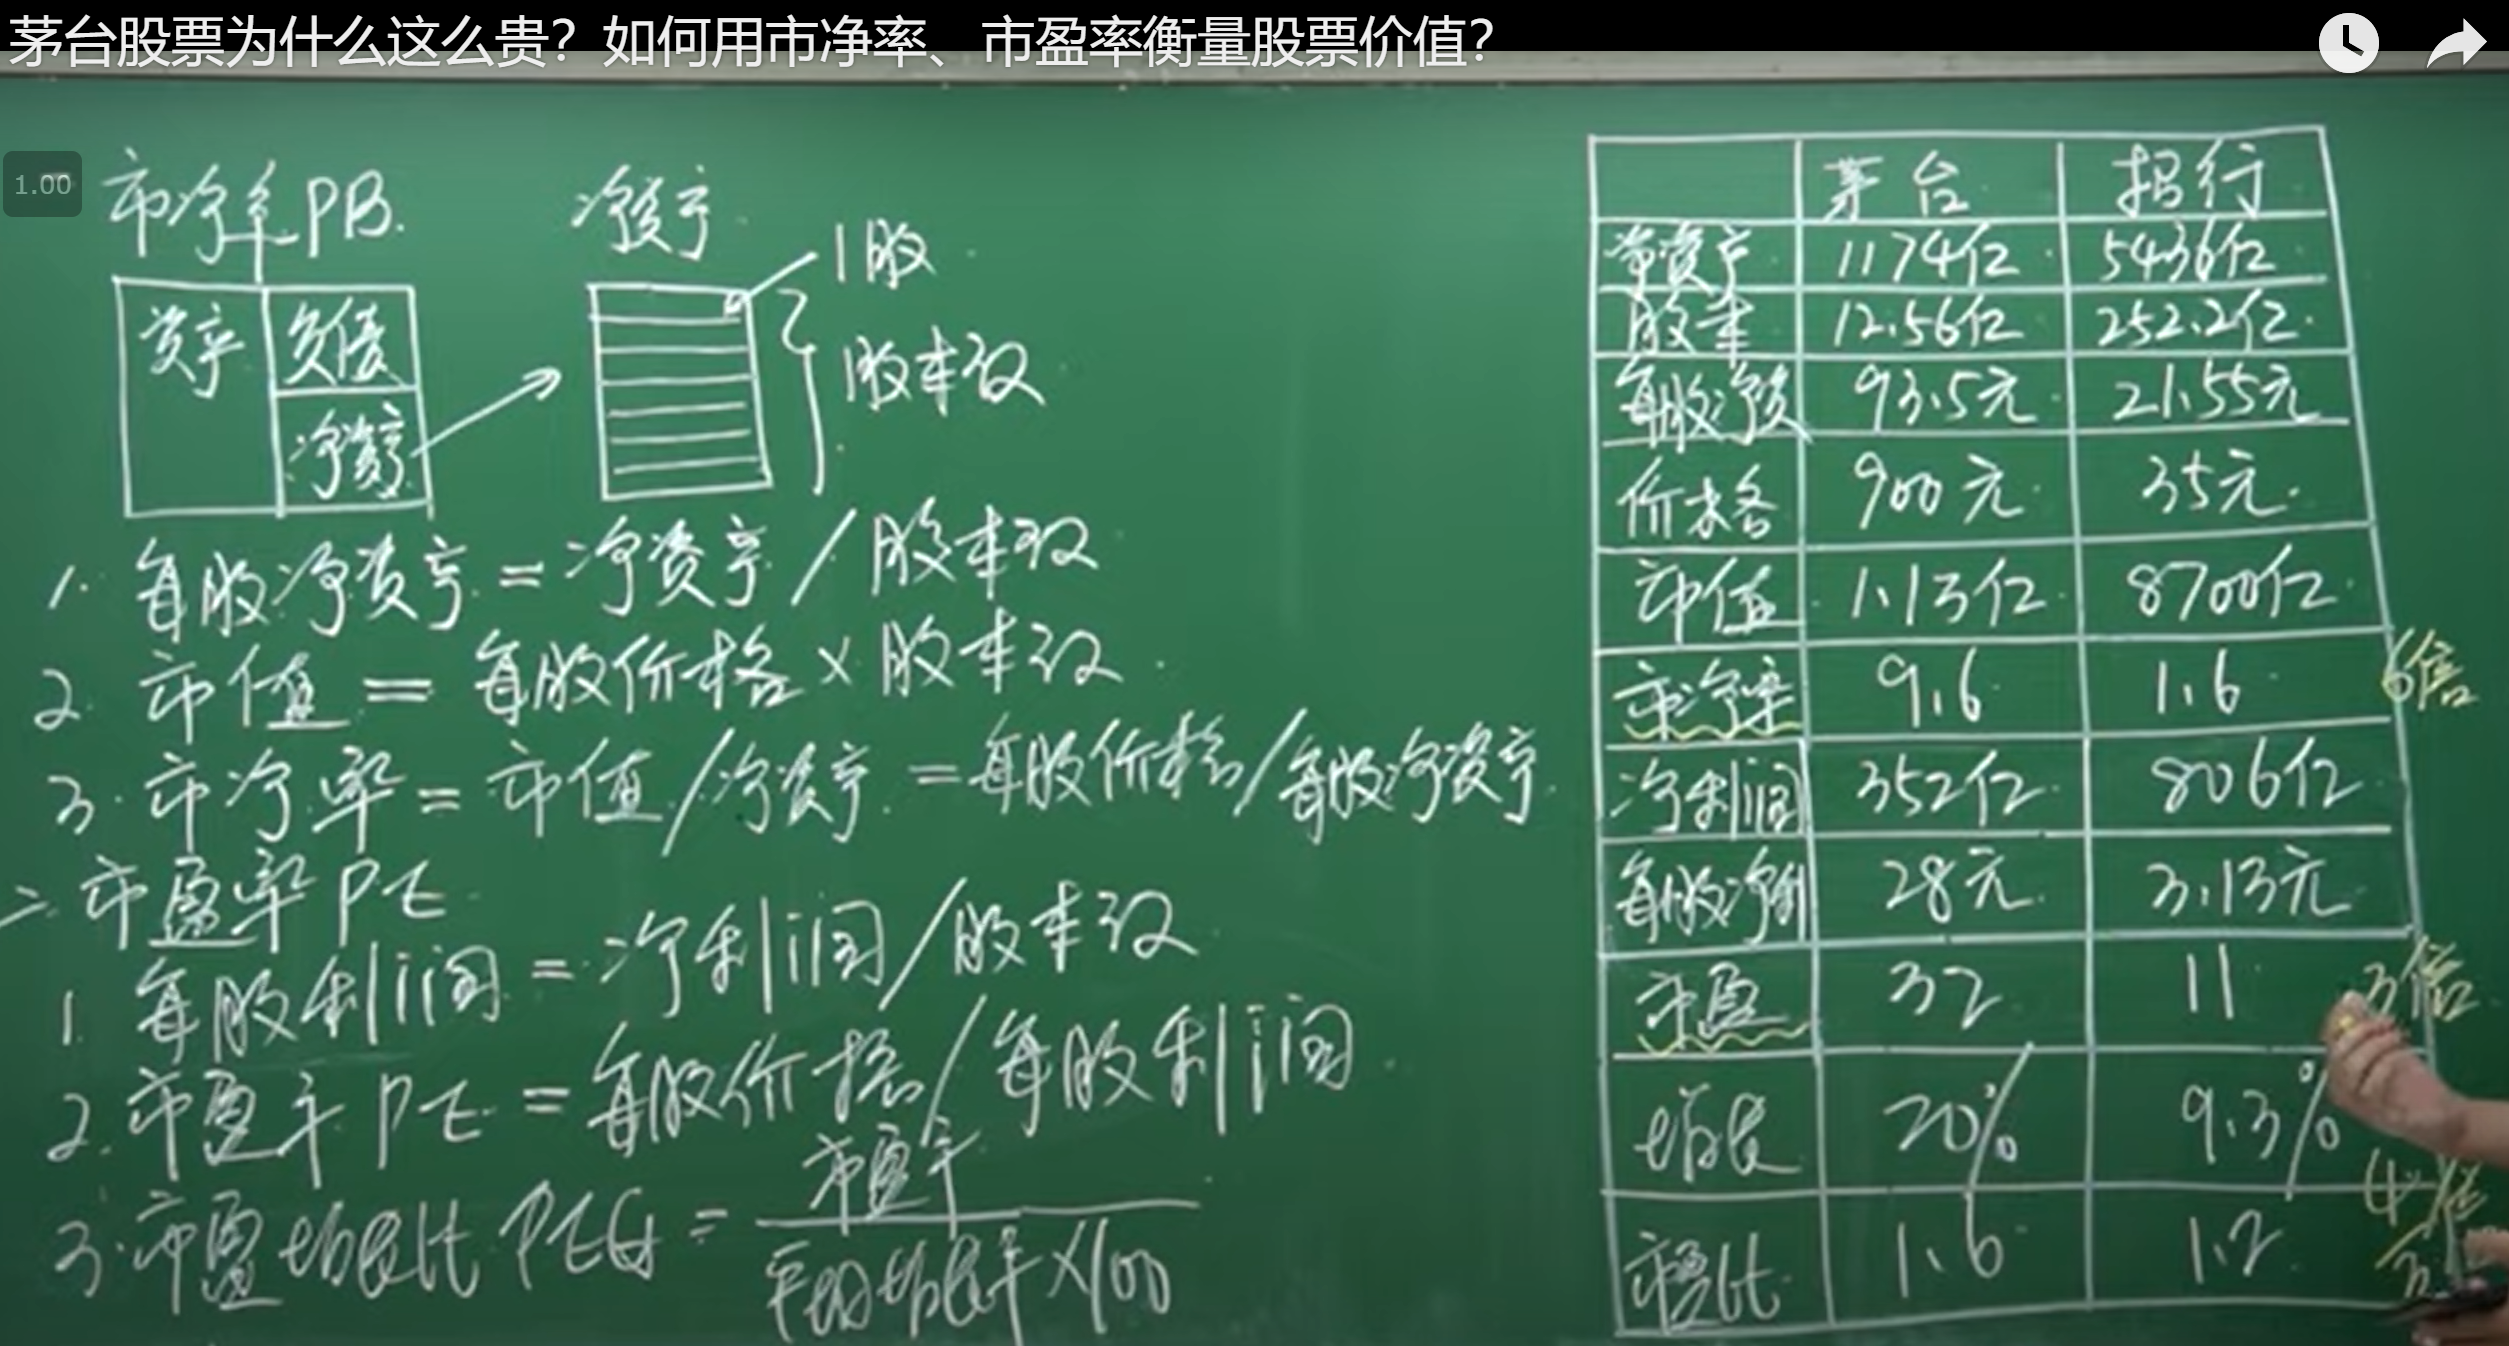 茅台股票为什么这么贵？如何用市净率、市盈率衡量股票价值？
1.00
市净率PB.
净资产
1股
股本数
资产
负债
净资产
1. 每股净资产 = 净资产/股本数
2. 市值 = 每股价格×股本数
3. 市净率 = 市值/净资产 = 每股价格/每股净资产
二. 市盈率PE
1. 每股利润 = 净利润/股本数
2. 市盈率PE = 每股价格/每股利润
3. 市盈增长比PEG = 市盈率
平均增长率×100
茅台 招行
净资产 1174亿 5436亿
股本 12.56亿 252.2亿
每股净资 93.5元 21.55元
价格 900元 35元
市值 1.13亿 8700亿
市净率 9.6 1.6 6倍
净利润 352亿 806亿
每股净利 28元 3.13元
市盈 32 11 3倍
增长 20% 9.3%
市盈比 1.6 1.2